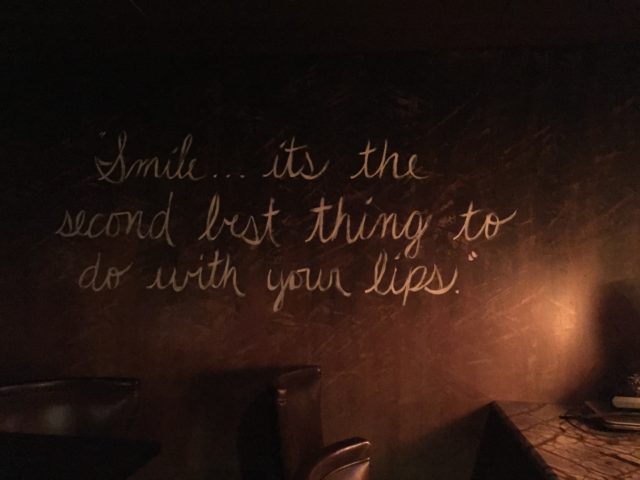 "Smile... its the
second best thing to
do with your lips."